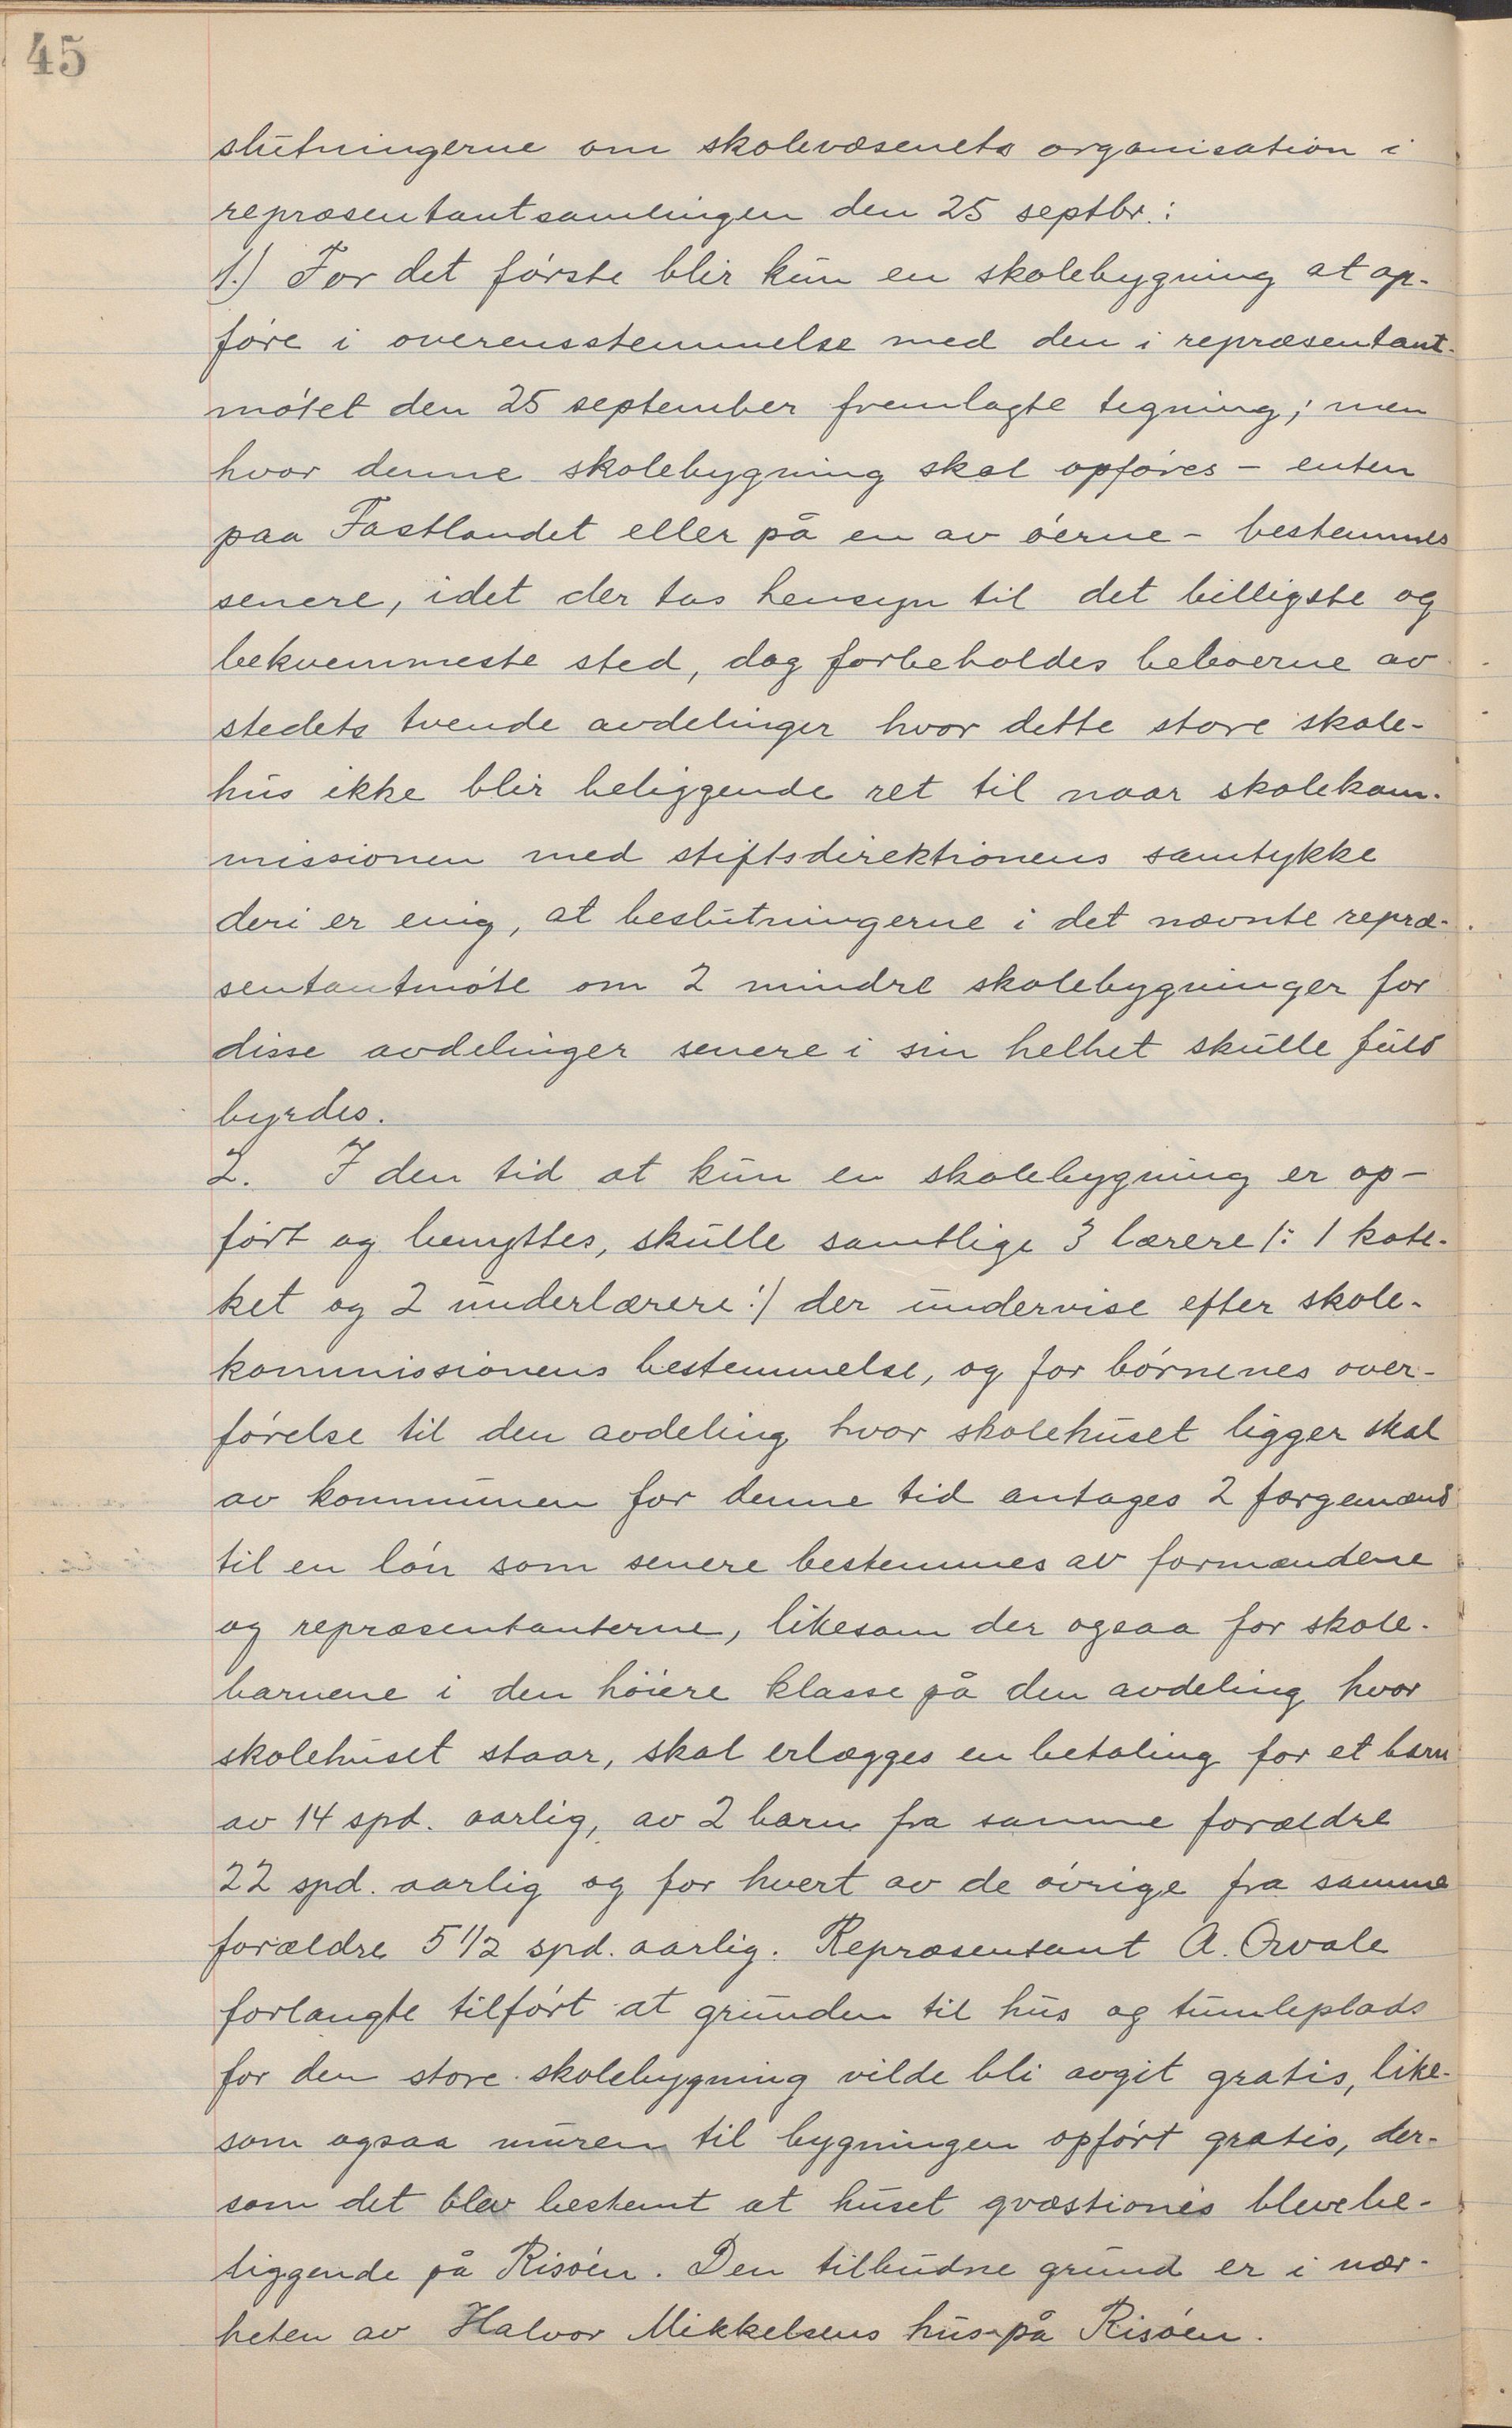 45
slutningerne om skolevæsenets organisation i
repræsentantsamlingen den 25 septbr.:
1.) For det første blir kun en skolebygning at op-
føre i overensstemmelse med den i repræsentant-
møtet den 25 september fremlagte tegning; men
hvor denne skolebygning skal opføres - enten
paa Fastlandet eller på en av øerne - bestemmes
senere, idet der tas hensyn til det billigste og
bekvemmeste sted, dog forbeholdes beboerne av
stedets tvende avdelinger hvor dette store skole-
hus ikke blir beliggende ret til naar skolekom-
missionen med stiftsdirektionens samtykke
deri er enig, at beslutningerne i det nævnte repræ-
sentantmøte om 2 mindre skolebygninger for
disse avdelinger senere i sin helhet skulle fuld
byrdes.
2. I den tid at kun en skolebygning er op-
ført og benyttes, skulle samtlige 3 lærere /: 1 kate-
ket og 2 underlærere :/ der undervise efter skole-
kommissionens bestemmelse, og for børnenes over-
førelse til den avdeling hvor skolehuset ligger skal
av kommunen for denne tid antages 2 færgemænd
til en løn som senere bestemmes av formændene
og repræsentanterne, likesom der ogsaa for skole-
barnene i den høiere klasse på den avdeling hvor
skolehuset staar, skal erlægges en betaling for et barn
av 14 spd. aarlig, av 2 barn fra samme forældre
22 spd. aarlig og for hvert av de øvrige fra samme
forældre 5 1/2 spd. aarlig. Repræsentant A. Qvale
forlangte tilført at grunden til hus og tumleplads
for den store skolebygning vilde bli avgit gratis, like-
som ogsaa muren til bygningen opført gratis, der-
som det blev bestemt at huset qvæstionis blev be-
liggende på Risøen. Den tilbudne grund er i nær-
heten av Halvor Mikkelsens hus på Risøen.